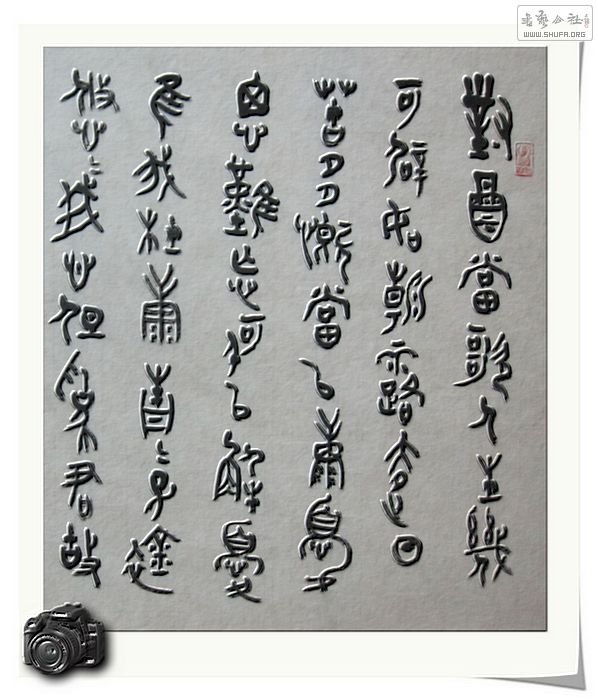 書藝公社
WWW.SHUFA.ORG
對酒當歌人生幾
何譬如朝露去日
苦多慨當以慷憂
思難忘何以解憂
唯有杜康青青子衿
悠悠我心但為君故